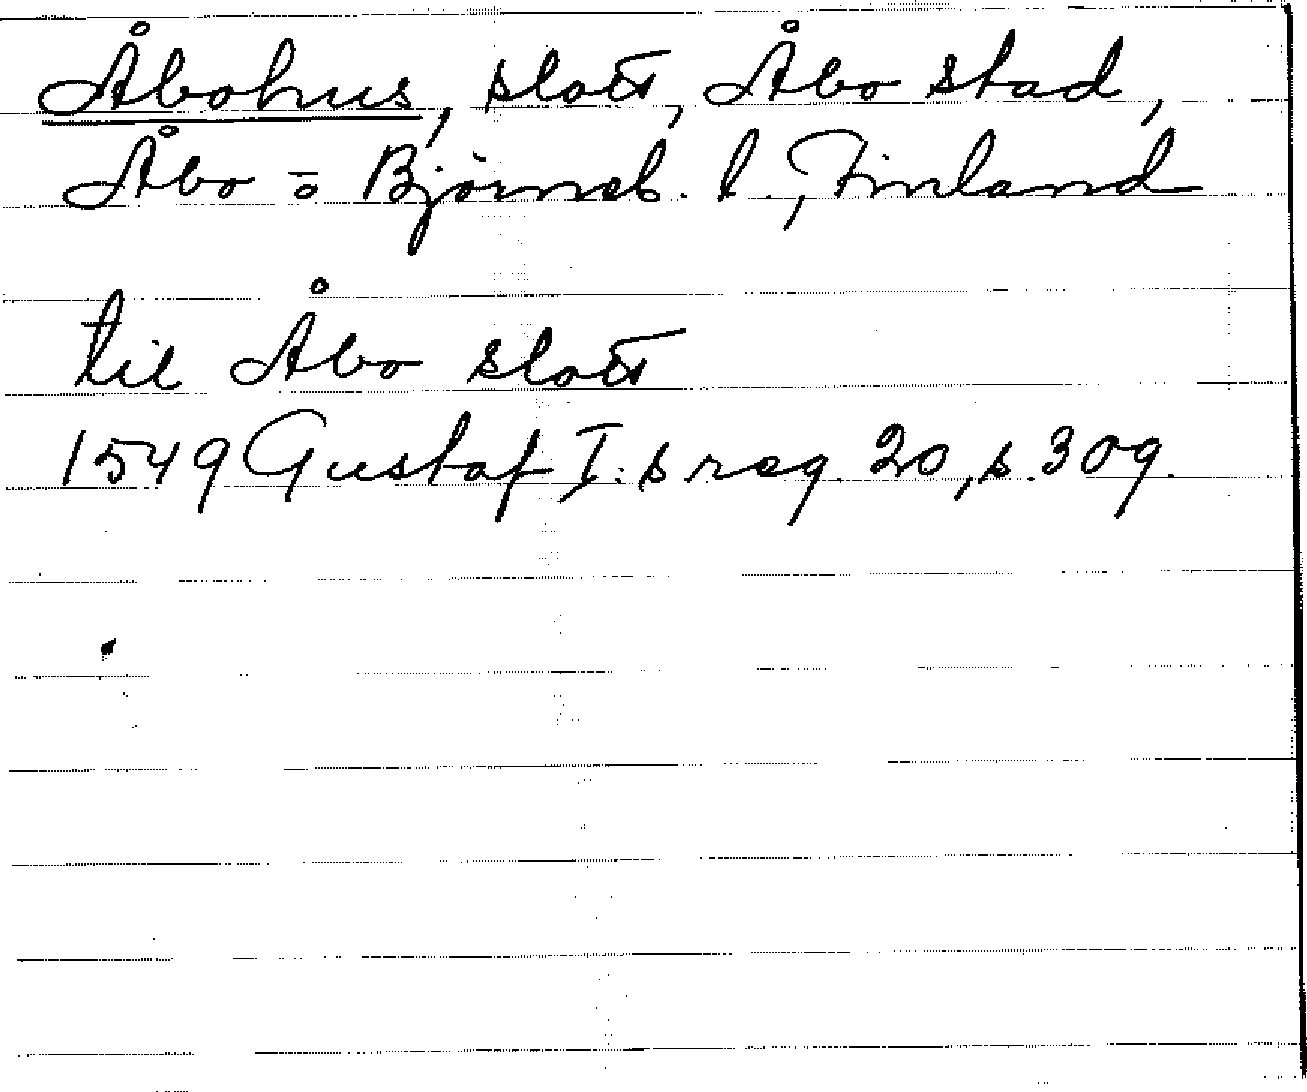 Åbohus, slott, Åbo stad,
Åbo o Björneb. l., Finland
til Åbo slott
1549 Gustaf I:s reg. 20, s. 309.